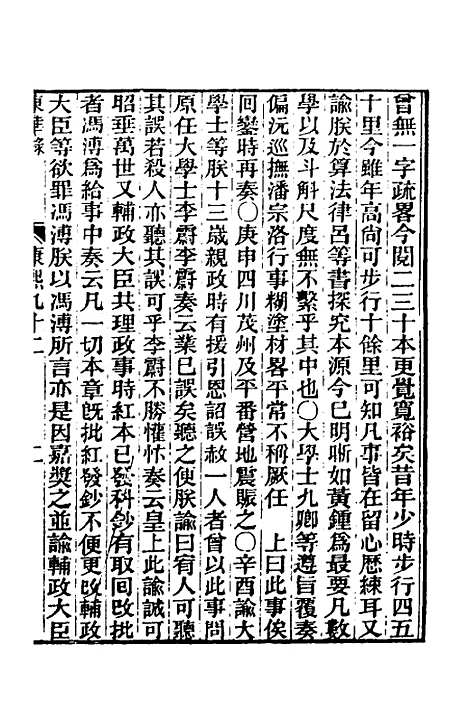 曾無一字疏畧今閱二三十本更覺寬裕矣昔年少時步行四五
十里今雖年高尚可步行十餘里可知凡事皆在留心歷練耳又
諭朕於算法律呂等書探究本源今已明晰如黃鍾爲最要凡數
學以及斗斛尺度無不繫乎其中也〇大學士九卿等遵旨覆奏
偏沅巡撫潘宗洛行事糊塗材畧平常不稱厥任　上曰此事俟
囘鑾時再奏〇庚申四川茂州及平番營地震賑之〇辛酉諭大
學士等朕十三歲親政時有援引恩詔誤赦一人者曾以此事問
原任大學士李霨李霨奏云業已誤矣聽之使朕諭曰宥人可聽
其誤若殺人亦聽其誤可乎李霨不勝懽忭奏云皇上此諭誠可
昭垂萬世又輔政大臣共理政事時紅本已發科鈔有取囘改批
者馮溥爲給事中奏云凡一切本章旣批紅發鈔不便更改輔政
大臣等欲罪馮溥朕以馮溥所言亦是因嘉獎之並諭輔政大臣
東華錄　康熙九十二　二